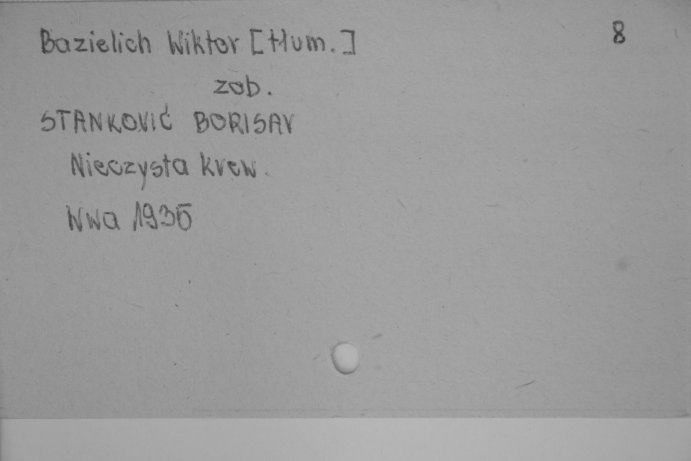 Bazielich Wiktor [tłum.] 8
zob.
STANKOVIĆ BORISAV
Nieczysta krew.
Wwa 1935